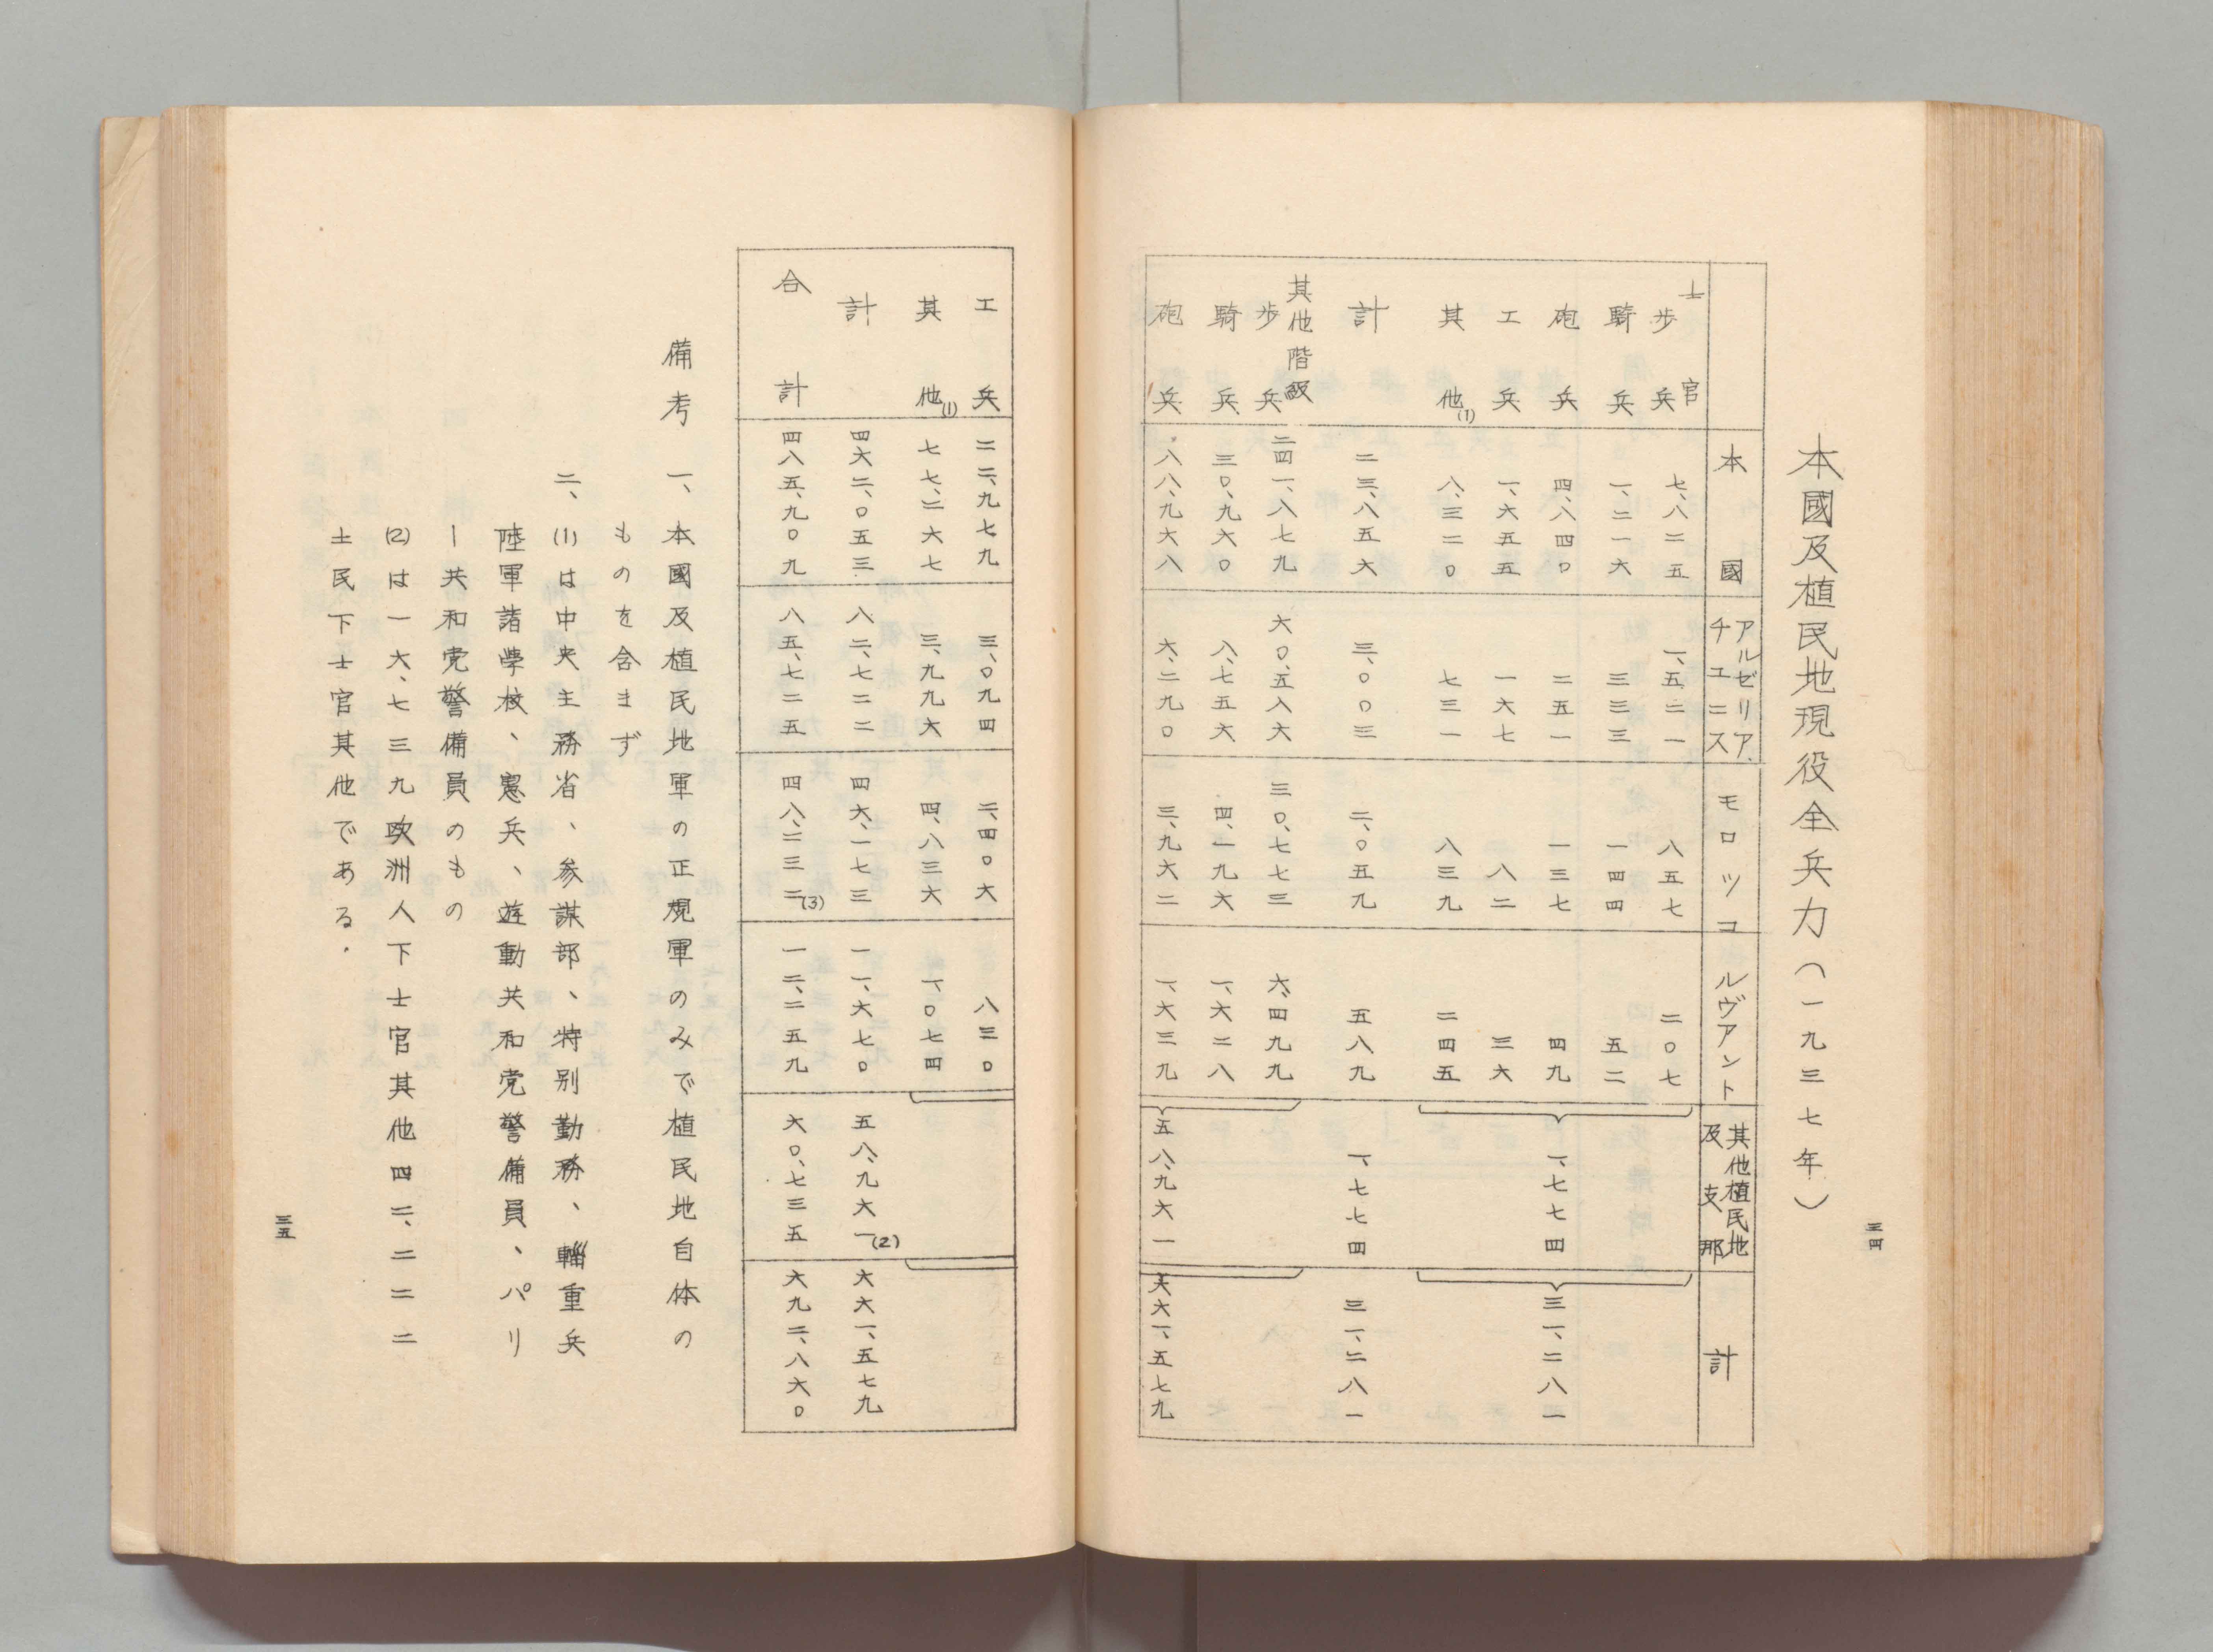 三四
本國及植民地現役全兵力(一九三七年)
本國 アルゼリア チユニス モロツコ ルヴアント 其他植民地及支那 計
士官
歩兵 七、八二五 一、五二一 八五七 二〇七
騎兵 一、二一六 三三三 一四四 五二
砲兵 四、八四〇 二五一 一三七 四九 一、七七四 三一、二八一
工兵 一、六五五 一六七 八二 三六
其他(1) 八、三二〇 七三一 八三九 二四五
計 二三、八五六 三、〇〇三 二、〇五九 五八九 一、七七四 三一、二八一
其他階級
歩兵 二四一、八七九 六〇、五八六 三〇、七七三 六、四九九
騎兵 三〇、九六〇 八、七五六 四、一九六 一、六二八
砲兵 八八、九六八 六、二九〇 三、九六二 一、六三九 五八、九六一 六六一、五七九
工兵 二二、九七九 三、〇九四 二、四〇六 八三〇
其他(1) 七七、二六七 三、九九六 四、八三六 一、〇七四
計 四六二、〇五三 八二、七二二 四六、一七三 一一、六七〇 五八、九六一(2) 六六一、五七九
合計 四八五、九〇九 八五、七二五 四八、二三二(3) 一二、二五九 六〇、七三五 六九二、八六〇
備考 一、本國及植民地軍の正規軍のみで植民地自体の
ものを含まず
二、(1)は中央主務省、参謀部、特別勤務、輜重兵
陸軍諸學校、憲兵、遊動共和党警備員、パリ
ー共和党警備員のもの
(2)は一六、七三九欧洲人下士官其他四二、二二二
土民下士官其他である.
三五